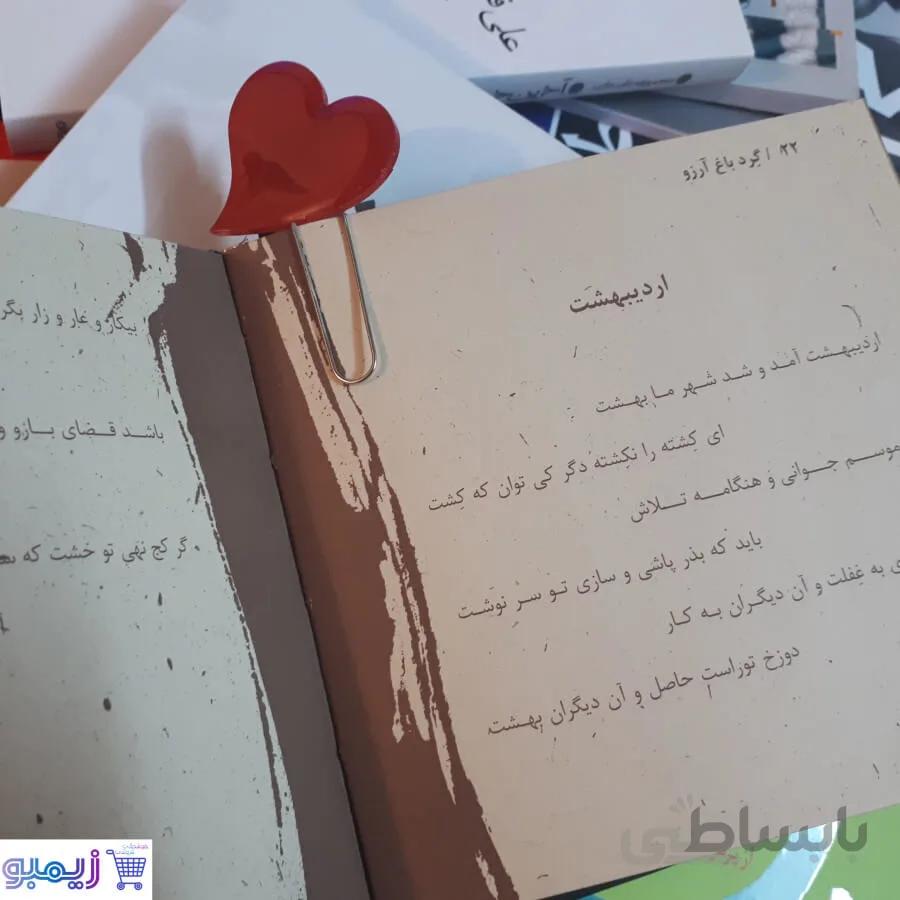 علی
۲۲ / گِرد باغ آرزو
اردیبهشت
اردیبهشت آمد و شد شهر ما بهشت
ای کِشته را نکِشته دگر کی توان که کِشت
موسم جوانی و هنگامه تلاش
باید که بذر پاشی و سازی تو سرِ نوشت
به غفلت و آن دیگران به کار
دوزخ توراست حاصل و آن دیگران بهشت
بیکار و عار و زار
باشد قضای بازو و
گر کج نهی تو خشت که
بابساطی
زیمبو